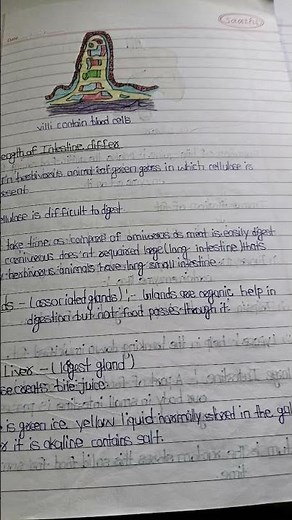 Saathi
villi contain blood cells
length of Intestine differ
In herbivores animal eat green grass in which cellulose is
present.
cellulose is difficult to dgest
take time as compares of omiveros as meat is easily digest
carnivorous does'nt required large/long intestine thats
herbivores animals have long small intestine.
ds - (associated glands) :- Glands are organic help in
digestion but not food passes through it.
Liver - (lagest gland)
secreats bile juice.
is green ice yellow liquid normally stored in the gal
it is akaline contains salt.